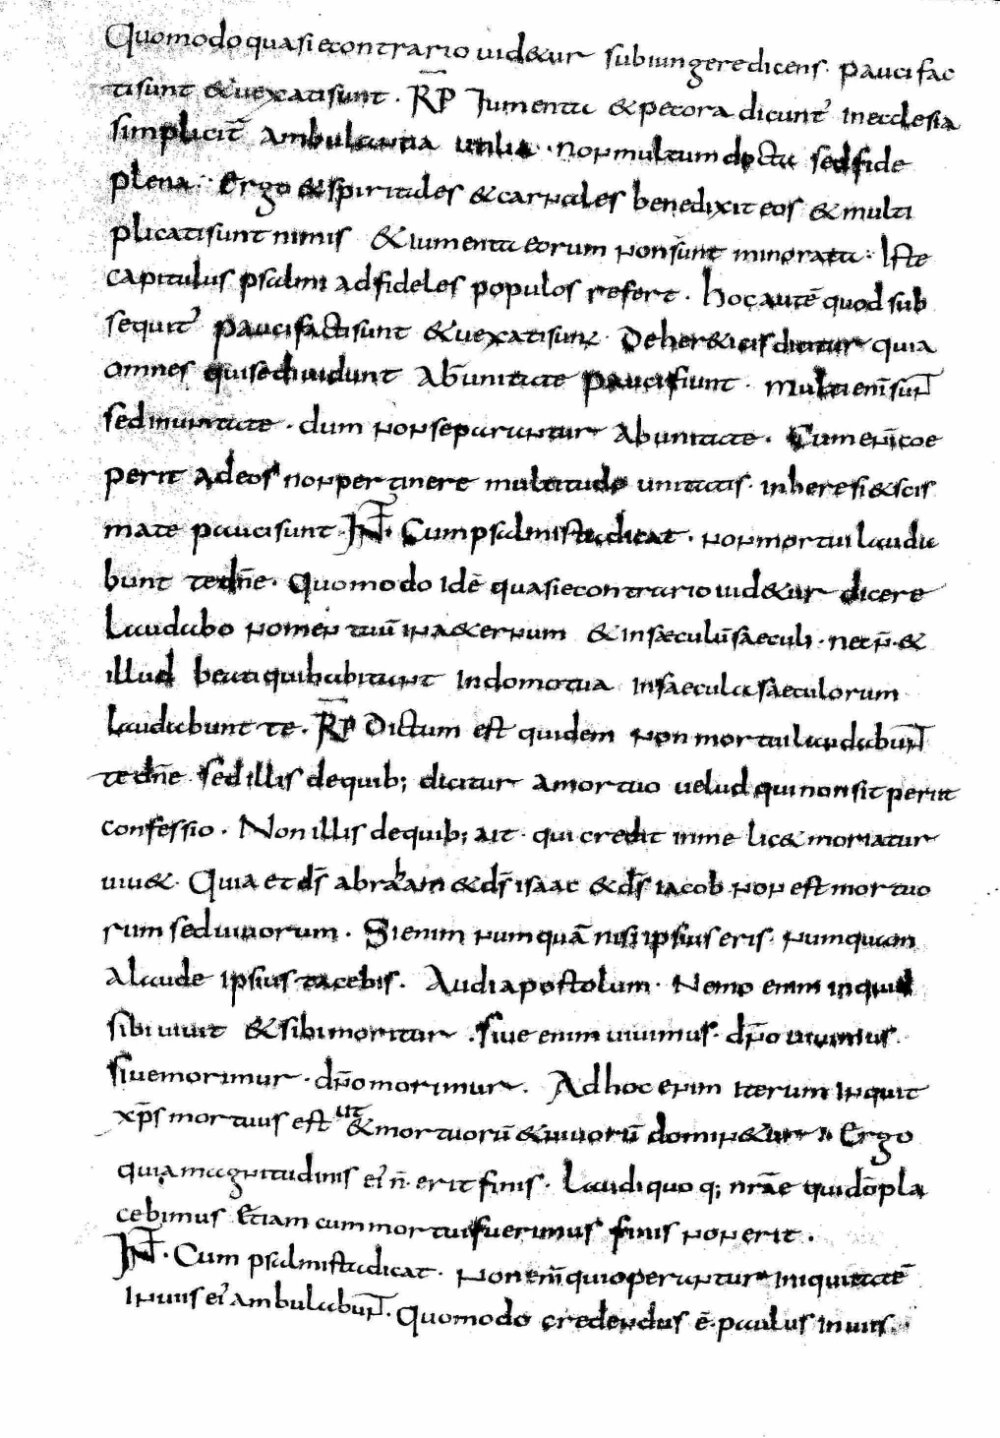 Quomodo quasi econtrario uid&ur subiungere dicens. pauci fac
ti sunt &uexati sunt. R̅P̅ Iumenta &pecora dicunt' inecclesia
simplicit̅ ambulantia utilia. non multum docta sed fide
plena. Ergo &spiritales &carnales benedixit eos &multi
plicati sunt nimis &iumenta eorum non sunt minorata. Iste
capitulus psalmi ad fideles populos refert. hoc autē quod sub
sequit' pauci facti sunt &uexati sunt. De her&icis dicitur quia
omnes qui se diuidunt ab unitate pauci fiunt. multi enī sunt̅
sed in unitate. dum non separantur ab unitate. Cum enī coe
perit ad eos non pertinere multitudo unitatis. in heresi &scis
mate pauci sunt. I̅N̅T̅. Cum psalmista dicat. non mortui lauda
bunt te dn̄e. Quomodo idē quasi econtrario uid&ur dicere
Laudabo nomen tuū in a&ernum &in saeculū saeculi. nec n̄ &
illud beati qui habitant in domo tua in saecula saeculorum
laudabunt te. R̅P̅ Dictum est quidem non mortui laudabun̅t
te dn̄e sed illis de quib; dicitur a mortuo uelud qui non sit periit
confessio. Non illis de quib; ait. qui credit in me lic& moriatur
uiu&. Quia et ds̄ abraham &ds̄ isaac &ds̄ iacob non est mortuo
rum sed uiuorum. Si enim numquā nisi ipsius eris. numquam
a laude ipsius tacebis. Audi apostolum. Nemo enim inquid
sibi uiuit &sibi moritur. siue enim uiuimus. dn̄o uiuimus.
siue morimur. dn̄o morimur. Ad hoc enim iterum inquit
xp̄s mortuus est ut &mortuorū &uiuorū domin&ur. Ergo
quia magnitudinis ei' n̄ erit finis. Laudi quoq; nrāe qui dō pla
cebimus Etiam cum mortui fuerimus finis non erit.
I̅N̅T̅. Cum psalmista dicat. non enī qui operantur iniquitatē
in uiis ei' ambulabun̅t. Quomodo credendus ē paulus in uiis.